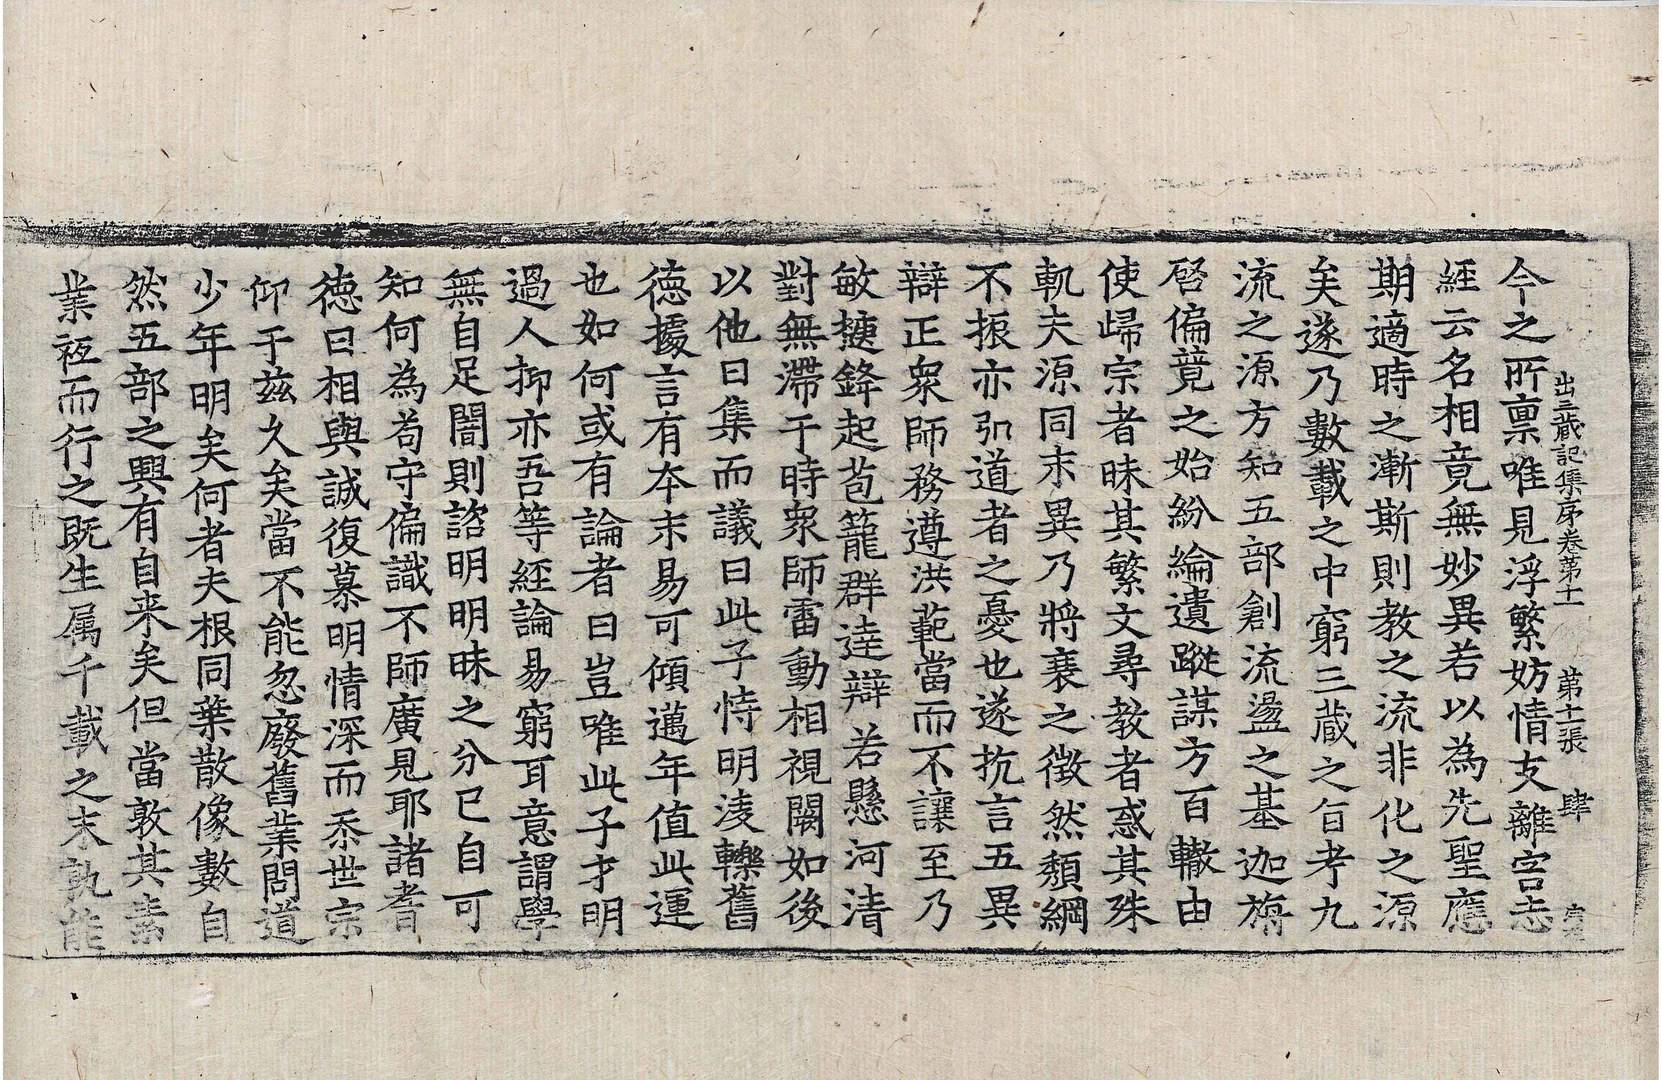 出三蔵記集序卷第十一 第十張 肆
今之所禀唯見浮繁妨情支離害志
經云名相竟無妙異若以為先聖應
期適時之漸斯則教之流非化之源
矣遂乃數載之中窮三蔵之旨考九
流之源方知五部創流盪之基迦旃
啓偏競之始紛綸遺蹤謀方百轍由
使歸宗者昧其繁文尋教者惑其殊
軌夫源同末異乃將衰之徵然頹綱
不振亦弘道者之憂也遂抗言五異
辯正衆師務遵洪範當而不讓至乃
敏捷鋒起苞籠群達辯若懸河清
對無滯于時衆師雷動相視闕如後
以他日集而議曰此子恃明淩轢舊
徳據言有本末易可傾邁年值此運
也如何或有論者曰豈唯此子才明
過人抑亦吾等經論易窮耳意謂學
無自足闇則諮明明昧之分已自可
知何為苟守偏識不師廣見耶諸耆
徳曰相與誠復慕明情深而忝世宗
仰于兹久矣當不能忽廢舊業問道
少年明矣何者夫根同葉散像數自
然五部之興有自来矣但當敦其素
業袛而行之既生属千載之末孰能